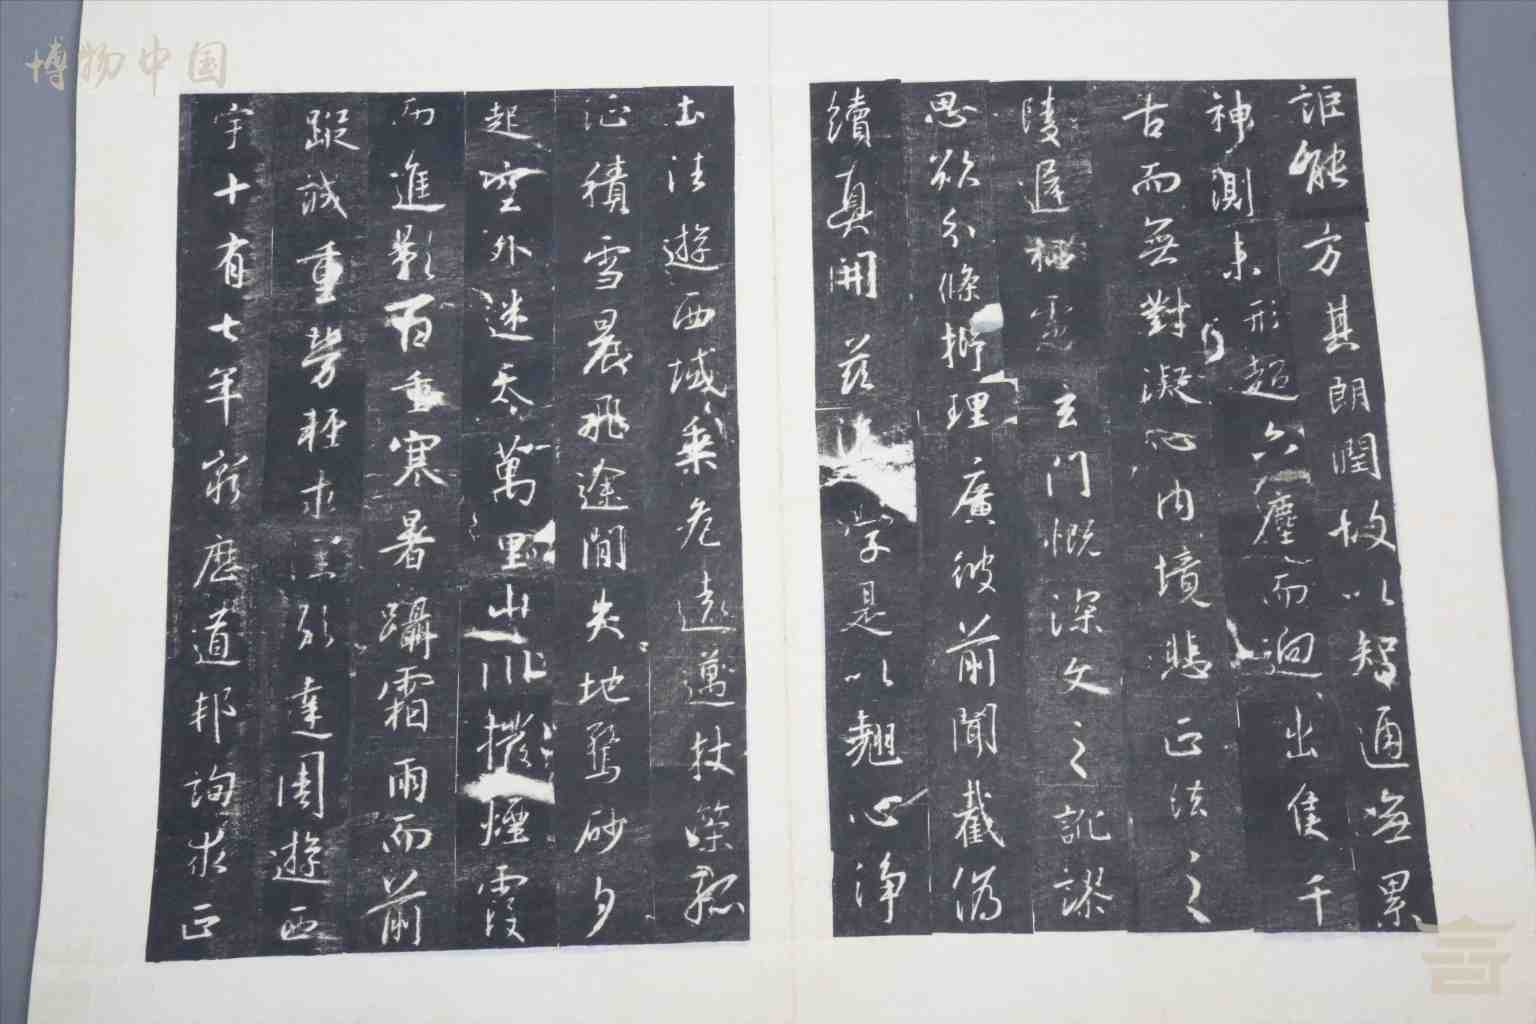 博物中国
詎能方其朗潤故以智通無累
神測未形超六塵而迥出隻千
古而無對凝心內境悲正法之
陵遲栖慮玄門慨深文之訛謬
思欲分條析理廣彼前聞截偽
續真開茲學是以翹心淨
土法遊西域乘危遠邁杖策孤
征積雪晨飛途間失地驚砂夕
起空外迷天萬里山川撥煙霞
而進影百重寒暑躡霜雨而前
蹤誠重勞輕求達周遊西
宇十有七年窮歷道邦詢求正